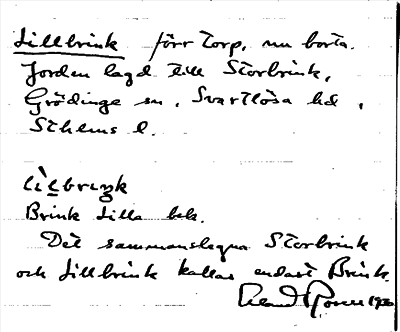 Lillbrink förr torp, nu borta.
Jorden lagd till Storbrink,
Grödinge sn, Svartlösa hd,
Sthlms l.
Brink Lilla bek.
Det sammanslagna Storbrink
och Lillbrink kallas endast Brink.